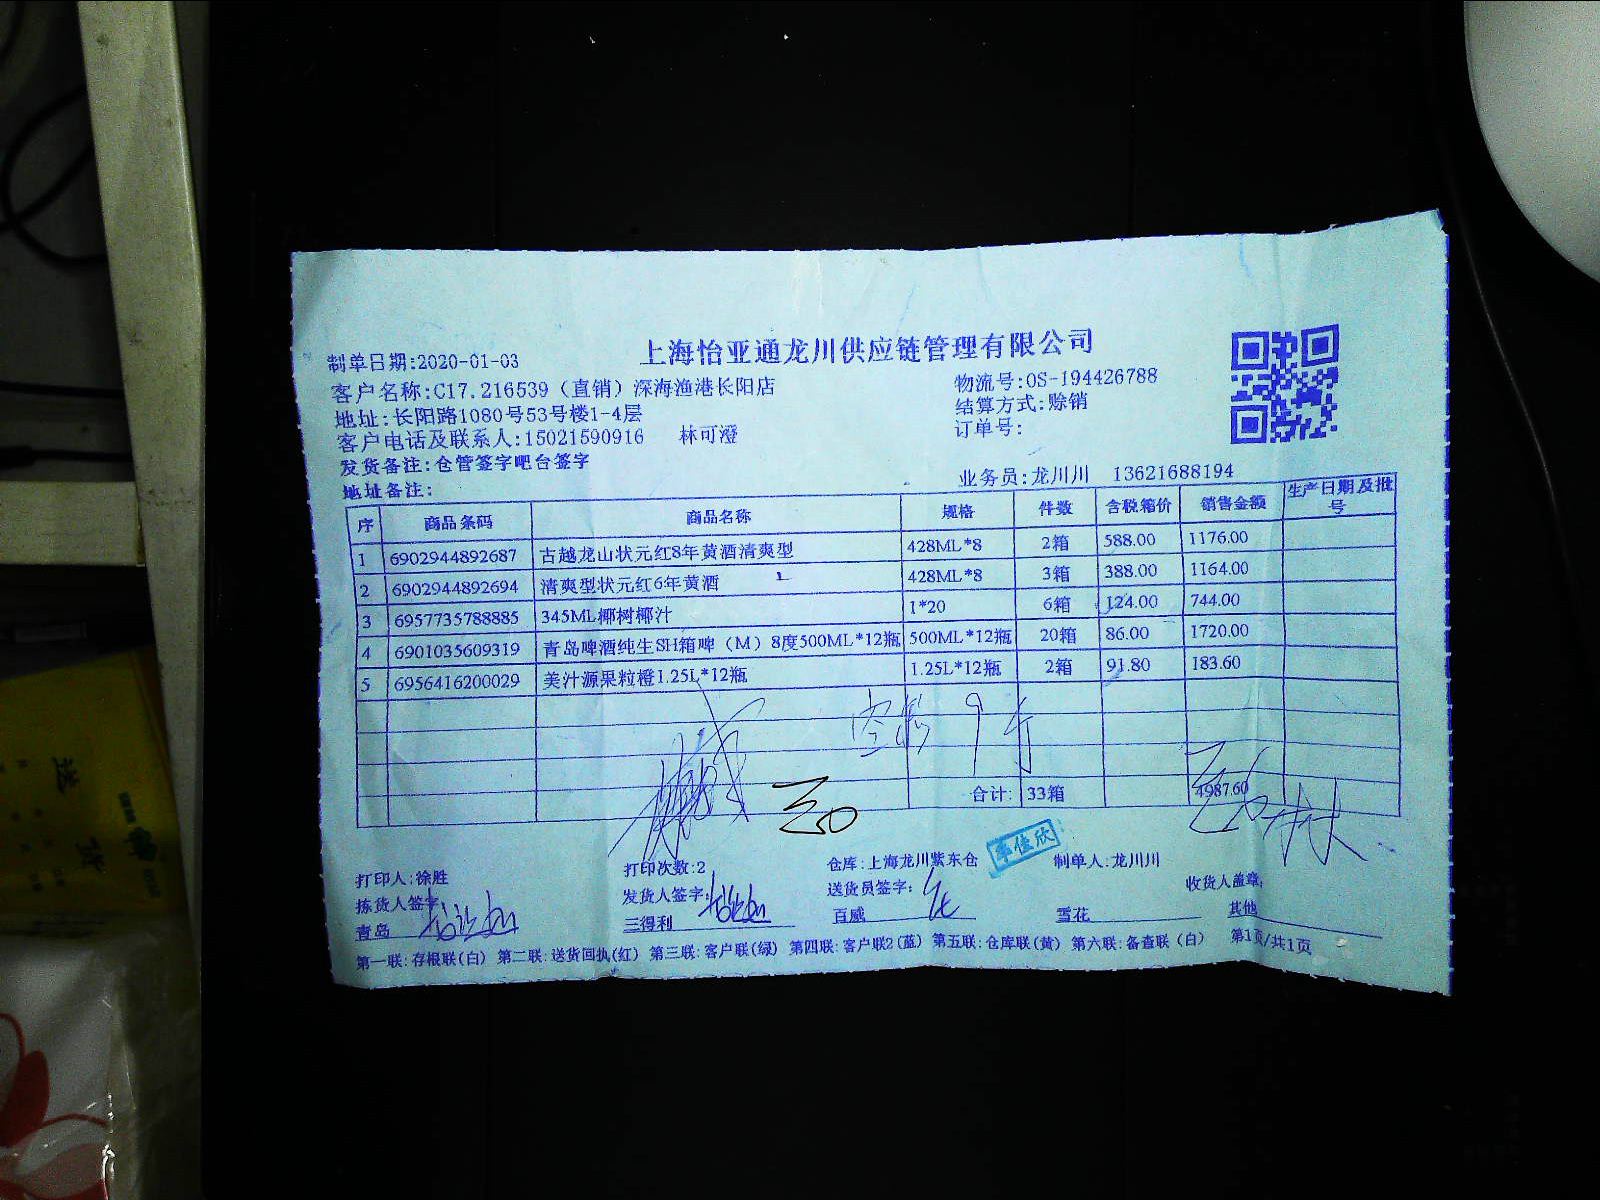 上海怡亚通龙川供应链管理有限公司
制单日期:2020-01-03
客户名称:C17.216539（直销）深海渔港长阳店 物流号:OS-194426788
地址:长阳路1080号53号楼1-4层 结算方式:赊销
客户电话及联系人:15021590916 林可澄 订单号:
发货备注:仓管签字吧台签字
地址备注: 业务员:龙川川 13621688194
序 商品条码 商品名称 规格 件数 含税箱价 销售金额 生产日期及批号
1 6902944892687 古越龙山状元红8年黄酒清爽型 428ML*8 2箱 588.00 1176.00
2 6902944892694 清爽型状元红6年黄酒 428ML*8 3箱 388.00 1164.00
3 6957735788885 345ML椰树椰汁 1*20 6箱 124.00 744.00
4 6901035609319 青岛啤酒纯生SH箱啤（M）8度500ML*12瓶 500ML*12瓶 20箱 86.00 1720.00
5 6956416200029 美汁源果粒橙1.25L*12瓶 1.25L*12瓶 2箱 91.80 183.60
合计: 33箱 4987.60
打印人:徐胜 打印次数:2 仓库:上海龙川紫东仓 制单人:龙川川
拣货人签字: 发货人签字: 送货员签字: 收货人盖章:
青岛 三得利 百威 雪花 其他
第一联:存根联(白) 第二联:送货回执(红) 第三联:客户联(绿) 第四联:客户联2(蓝) 第五联:仓库联(黄) 第六联:备查联（白） 第1页/共1页
送
货